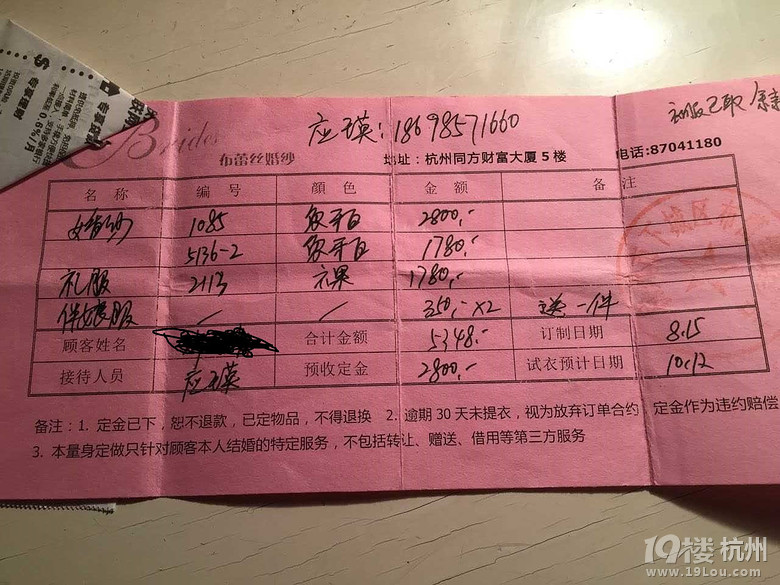 应王英:18698571660
衣服已取 余款
Brides
布蕾丝婚纱 地址:杭州同方财富大厦5楼 电话:87041180
名称 编号 颜色 金额 备注
女婚纱 1085 2800.-
5136-2 1780.-
礼服 2113 1780.-
伴娘服 / / 350.-×2 送一件
顾客姓名 合计金额 5348.- 订制日期 8.15
接待人员 预收定金 2800.- 试衣预计日期 10.12
备注:1. 定金已下,恕不退款,已定物品,不得退换 2. 逾期30天未提衣,视为放弃订单合约,定金作为违约赔偿
3. 本量身定做只针对顾客本人结婚的特定服务,不包括转让、赠送、借用等第三方服务
0.6%/月
19楼 杭州
www.19Lou.com